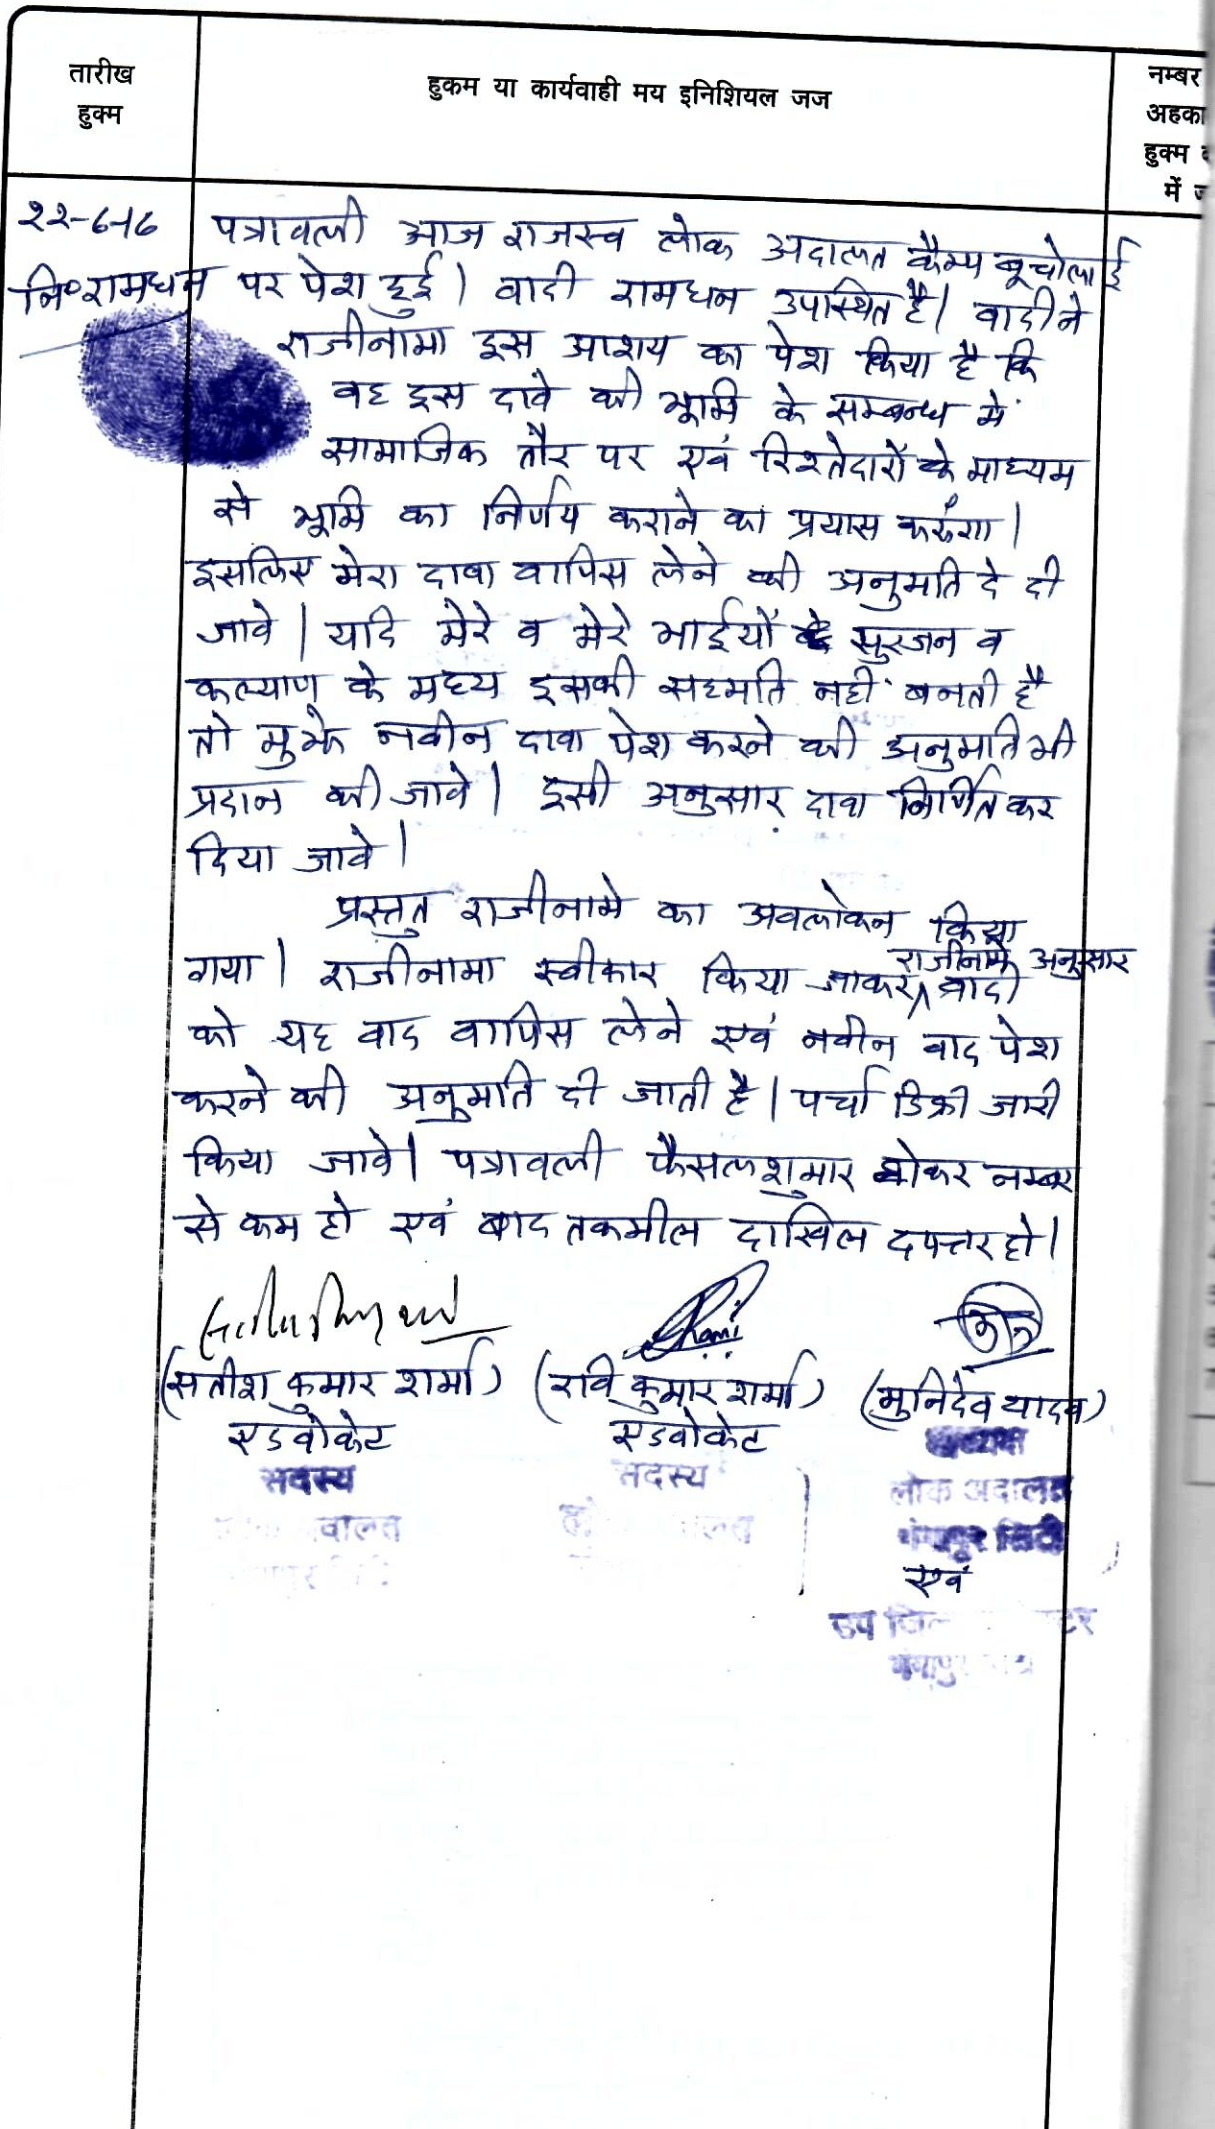 तारीख
हुक्म
हुकम या कार्यवाही मय इनिशियल जज
नम्बर
अहका
हुक्म
में ज
२२-६-१६
नि० रामधन
पत्रावली आज राजस्व लोक अदालत कैम्प बूचोलाई
पर पेश हुई। वादी रामधन उपस्थित है। वादी ने
राजीनामा इस आशय का पेश किया है कि
वह इस दावे की भूमि के सम्बन्ध में
सामाजिक तौर पर एवं रिश्तेदारों के माध्यम
से भूमि का निर्णय कराने का प्रयास करूंगा।
इसलिए मेरा दावा वापिस लेने की अनुमति दे दी
जावे। यदि मेरे व मेरे भाईयों सुरजन व
कल्याण के मध्य इसकी सहमति नहीं बनती है
तो मुझे नवीन दावा पेश करने की अनुमति भी
प्रदान की जावे। इसी अनुसार दावा निर्णित कर
दिया जावे।
प्रस्तुत राजीनामे का अवलोकन किया
गया। राजीनामा स्वीकार किया जाकर राजीनामे अनुसार वादी
को यह वाद वापिस लेने एवं नवीन वाद पेश
करने की अनुमति दी जाती है। पर्चा डिक्री जारी
किया जावे। पत्रावली फैसल शुमार होकर नम्बर
से कम हो एवं बाद तकमील दाखिल दफ्तर हो।
(सतीश कुमार शर्मा) (रवि कुमार शर्मा) (मुनिदेव यादव)
एडवोकेट एडवोकेट
सदस्य सदस्य
लोक अदालत
गंगापुर सिटी
एवं
उप जिला